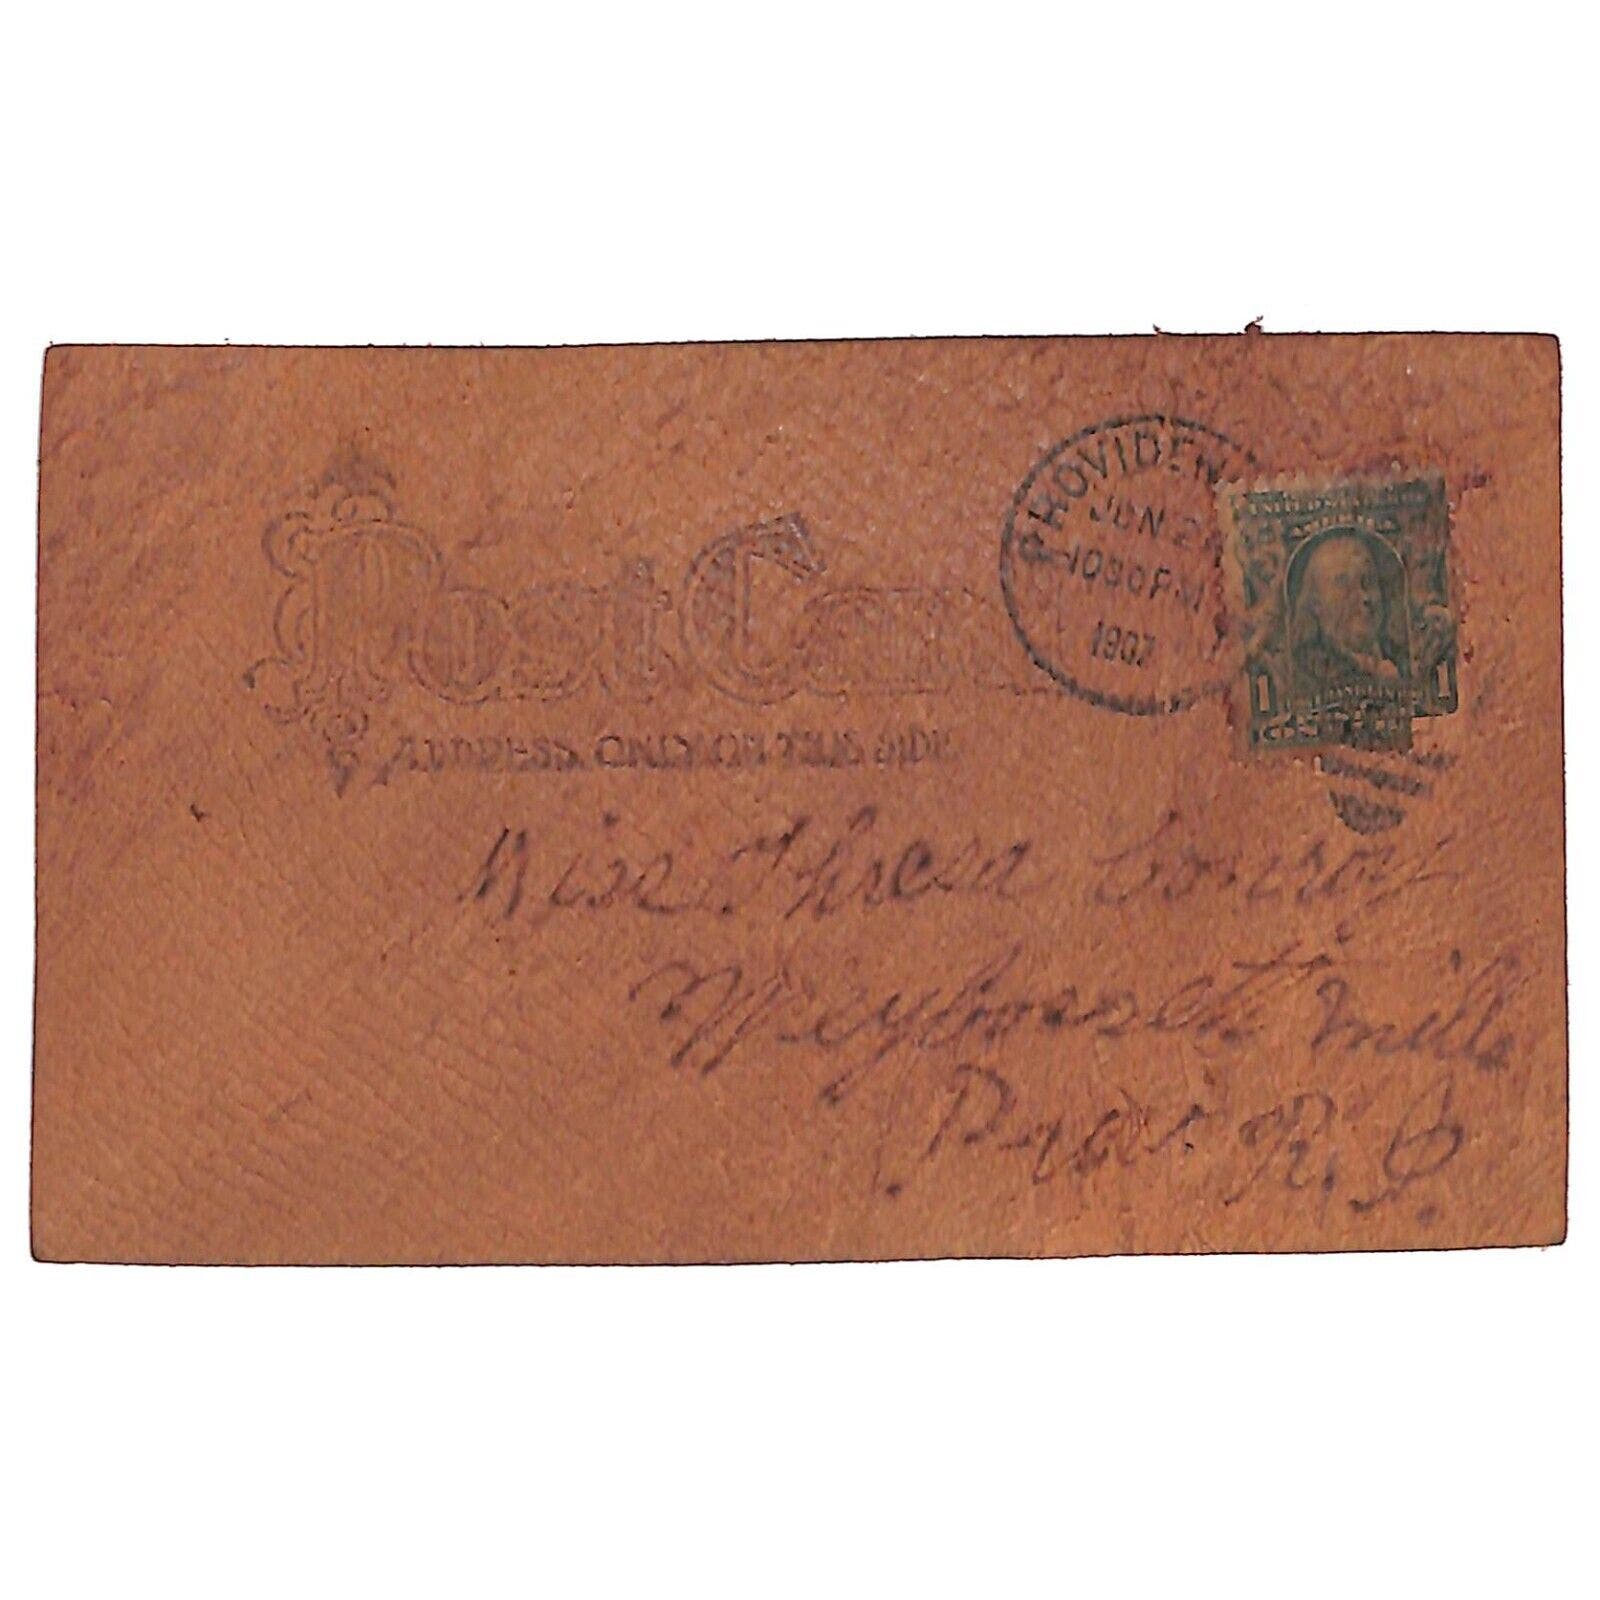 Post Card
ADDRESS ONLY ON THIS SIDE
PROVIDEN
JUN 2
1030 PM
1907
UNITED STATES
AMERICA
1 1
Miss Thresa Conroy
Weybosset Mills
Prov. R. I.